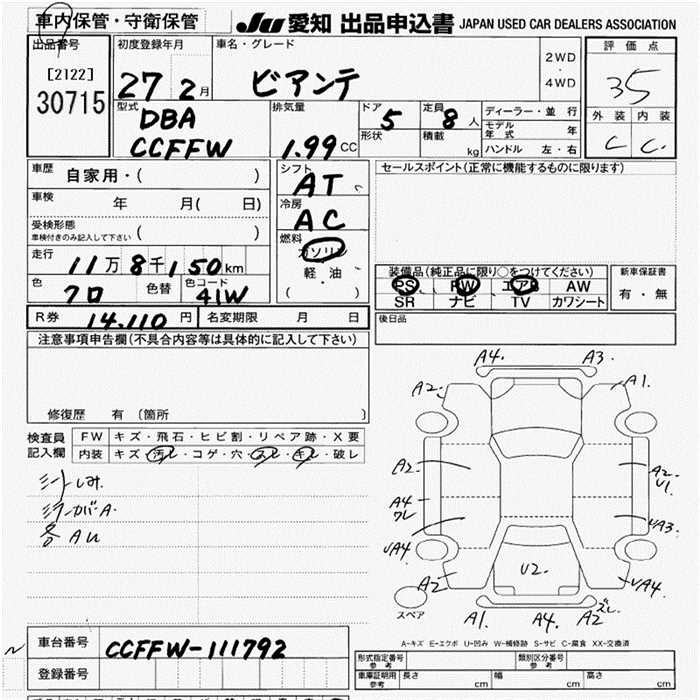 車内保管・守衛保管
JU 愛知 出品申込書 JAPAN USED CAR DEALERS ASSOCIATION
出品番号
[2122]
30715
初度登録年月
27 2月
車名・グレード
ビアンテ
2WD
・
4WD
評価点
35
外装 内装
C C
型式
DBA
CCFFW
排気量
1.99 CC
ドア
5
形状
定員
8 人
積載
kg
ディーラー・並行
モデル年式 年
ハンドル 左・右
車歴 自家用・( )
車検 年 月( 日)
受検形態
車検付きのみ記入して下さい ( )
走行 11万 8千 150 km
色 クロ 色替 色コード 41W
シフト
AT
冷房
AC
燃料
ガソリン
軽油
( ・ )
セールスポイント(正常に機能するものに限ります)
装備品(純正品に限り○をつけてください)
PS PW エアB AW
SR ナビ TV カワシート
新車保証書
有・無
R券 14.110 円 名変期限 月 日
後日品
注意事項申告欄(不具合内容等は具体的に記入して下さい)
修復歴 有 〔箇所 〕
検査員
記入欄
FW キズ・飛石・ヒビ割・リペア跡・X要
内装 キズ・汚レ・コゲ・穴・スレ・キレ・破レ
シートしみ
各AU
A4. A3.
A2 A1.
A2 A2
U1
A4
ワレ
UA4 UA3
A2 U2 UA4
A1. A4. A2 ズレ
スペア
A-キズ E-エクボ U-凹み W-補修跡 S-サビ C-腐食 XX-交換済
車台番号 CCFFW-111792
登録番号
形式指定番号
参考
類別区分番号
参考
車庫証明用
参考
長さ cm 幅 cm 高さ cm